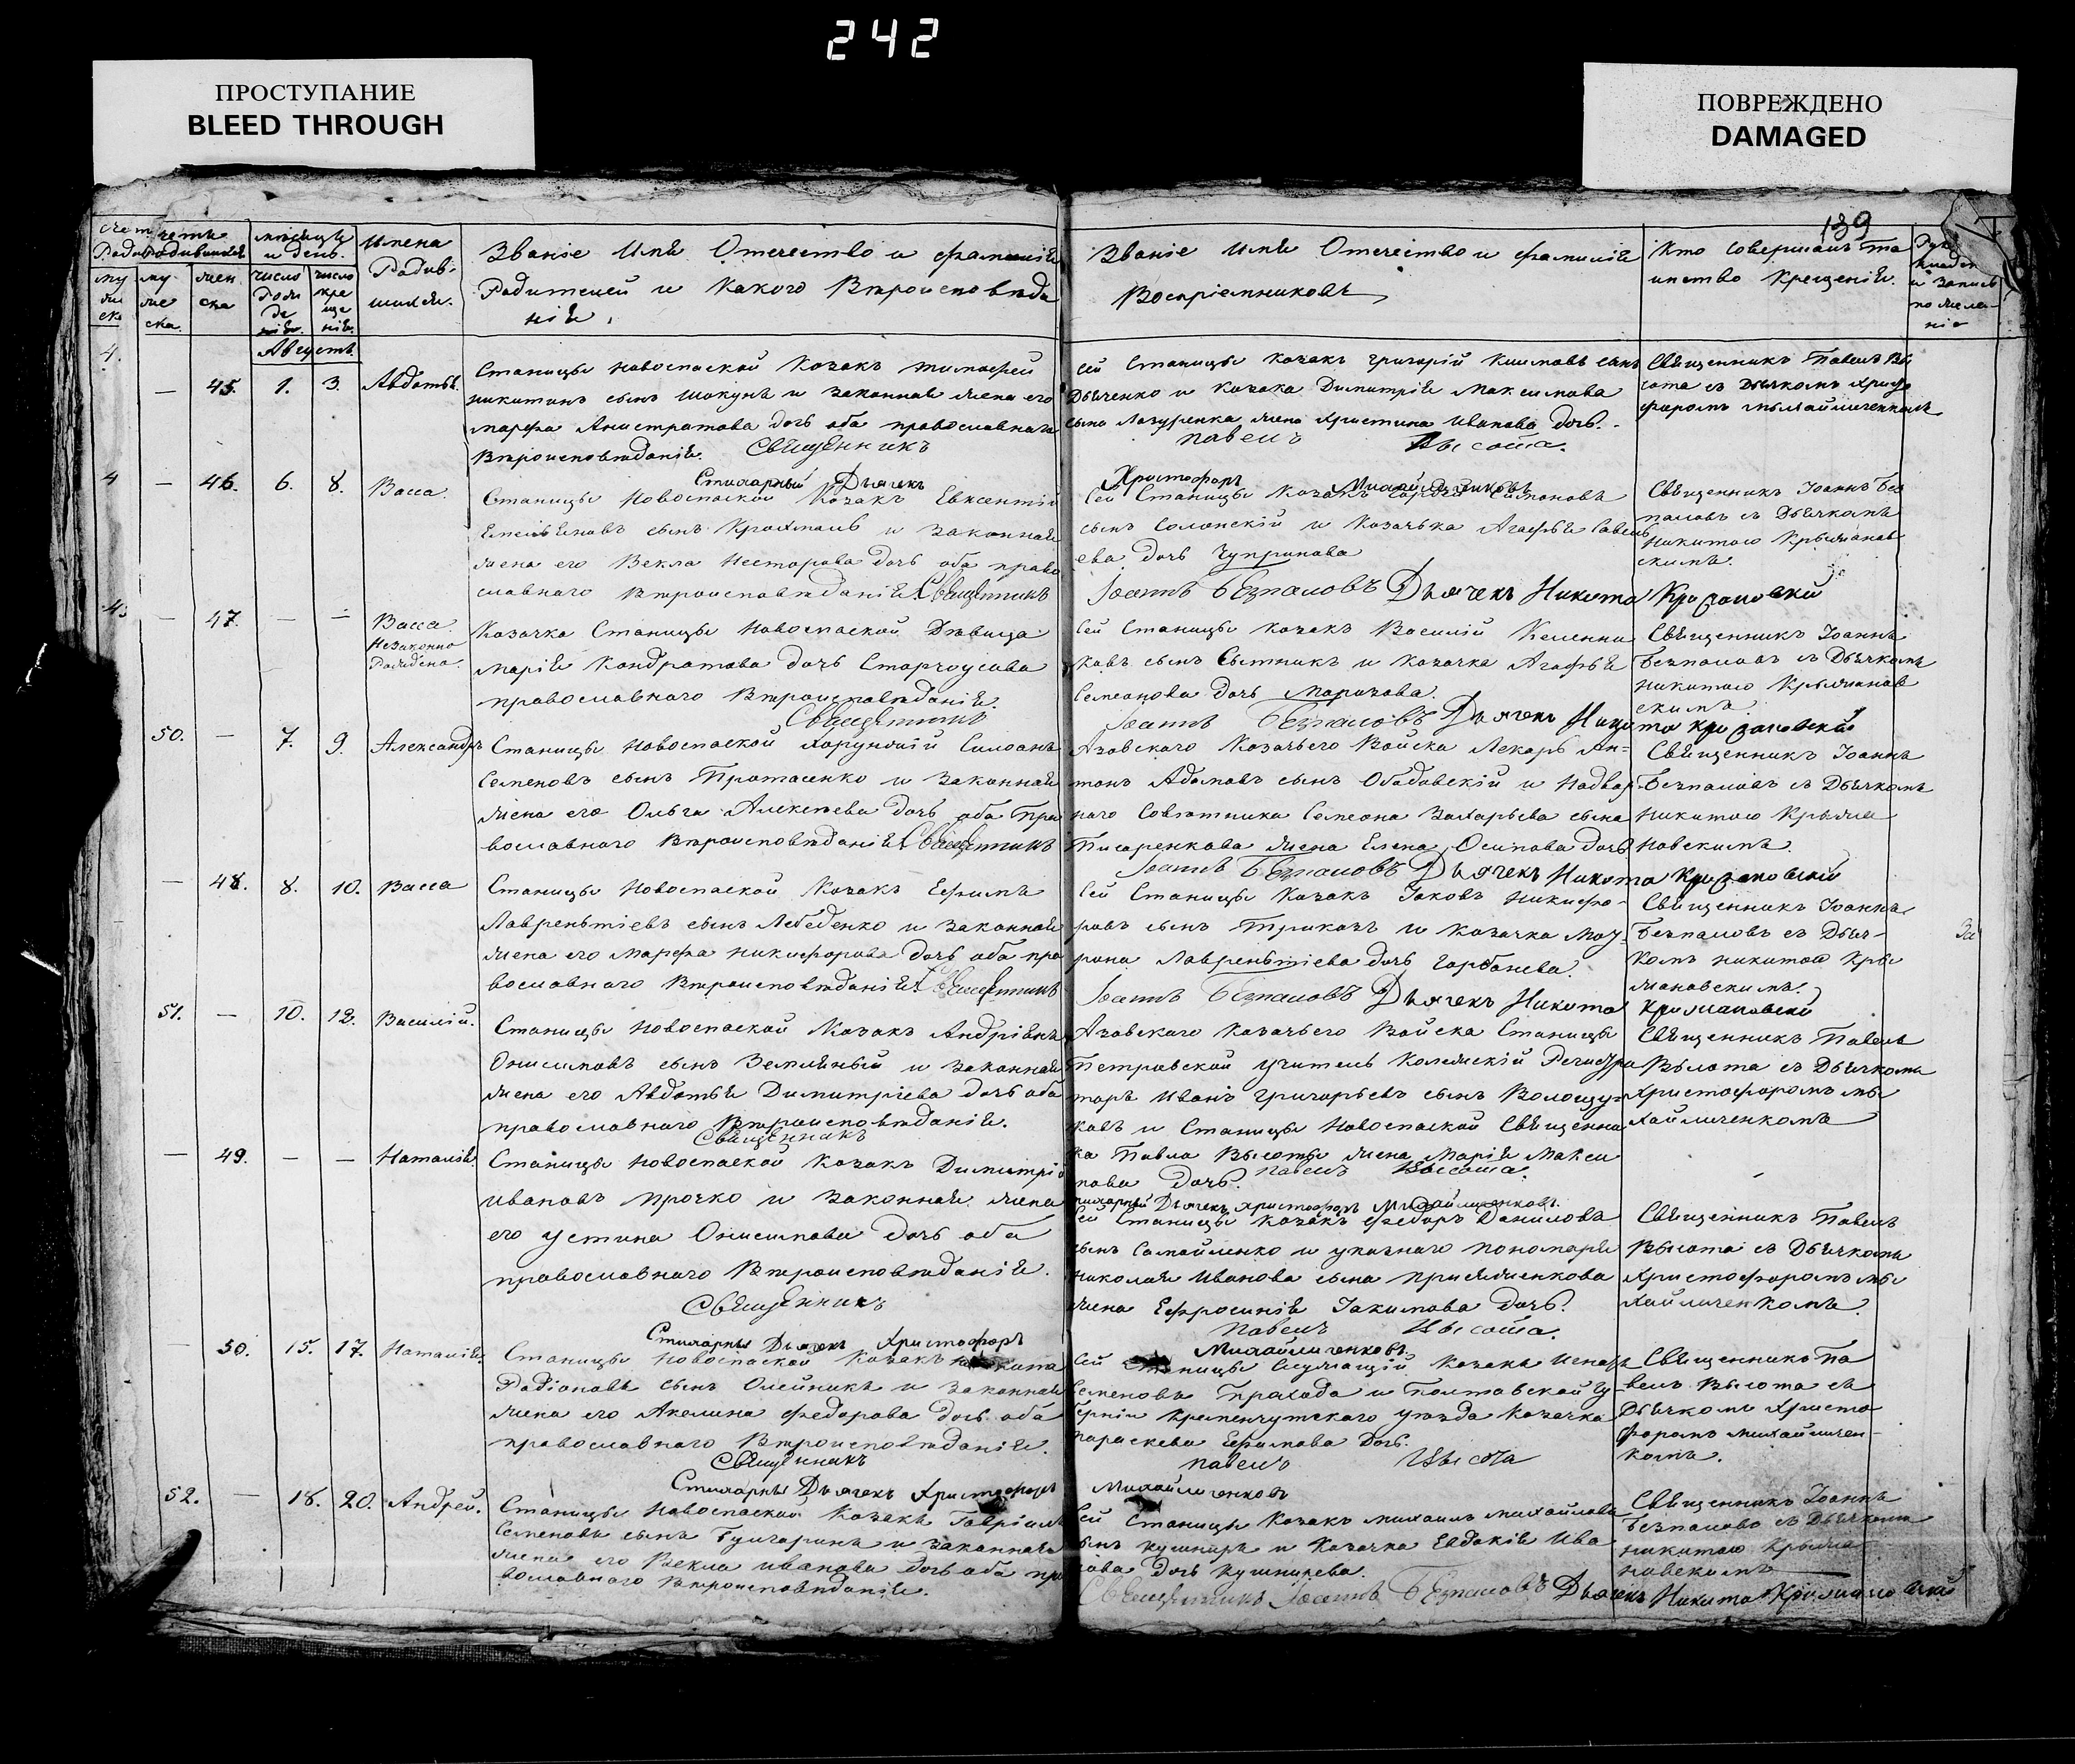 242
ПРОСТУПАНИЕ
BLEED THROUGH
ПОВРЕЖДЕНО
DAMAGED
139
мѣсяцъ
и день.
Имена
Родив-
шихся.
Званіе Имя Отечество и фамилія
Родителей и Какого Вѣроисповѣда
нія.
Званіе Имя Отечество и фамилія
Воспріемниковъ
Кто совершалъ та
инство Крещенія.
Августъ
— 45. 1. 3. Авдотья.
Станицы Новоспаской Козакъ Тимофей
Никитинъ сынъ Шокунъ и законная жена его
Марфа Анистратова дочь оба православнаго
Вѣроисповѣданія. Священникъ
сей Станицы Козакъ Григорій Климовъ сынъ
Дьяченко и Козака Димитрія Максимова
сына Лазуренка жена Христина Иванова дочь.
Павелъ Высота.
Священникъ Павелъ Вы
сота съ Дьячкомъ Христо
форомъ Михайличенкомъ
— 46. 6. 8. Васса.
Стихарный Дьячекъ
Христофоръ
Станицы Новоспаской Козакъ Евксентій
Емельяновъ сынъ Крохмаль и законная
жена его Векла Несторова дочь оба право
славнаго Вѣроисповѣданія. Священникъ
сынъ Солонскій и Козачька Агафья Савель
ева дочь Чупринова
Іоаннъ Безпаловъ Дьячекъ Никита Крыжановскій
Священникъ Іоаннъ Без
паловъ съ Дьячкомъ
Никитою Крыжанов
скимъ.
— 47. — — Васса.
Незаконно
Рождена.
Козачка Станицы Новоспаской Дѣвица
Марія Кондратова дочь Старчоусова
православнаго Вѣроисповѣданія.
Священникъ
сей Станицы Козакъ Василій Келенни
ковъ сынъ Сытникъ и Козачка Агафья
Семеонова дочь Морозова.
Іоаннъ Безпаловъ Дьячекъ Никита Крыжановскій
Священникъ Іоаннъ
Безпаловъ съ Дьячкомъ
Никитою Крыжанов
скимъ.
50. — 7. 9. Александръ
Станицы Новоспаской Хорунжій Симеонъ
Семеновъ сынъ Протасенко и законная
жена его Ольга Алексѣева дочь оба пра
вославнаго Вѣроисповѣданія. Священникъ
Азовскаго Козачьего Войска Лекарь Ан-
тонъ Адамовъ сынъ Ободовскій и Надвор
наго Совѣтника Семеона Захарьева сына
Писаренкова жена Елена Осипова дочь
Іоаннъ Безпаловъ Дьячекъ Никита Крыжановскій
Священникъ Іоаннъ
Безпаловъ съ Дьячкомъ
Никитою Крыжа
новскимъ.
— 48. 8. 10. Васса
Станицы Новоспаской Козакъ Ефимъ
Лаврентіевъ сынъ Лебеденко и законная
жена его Марфа Никифорова дочь оба пра
вославнаго Вѣроисповѣданія. Священникъ
сей Станицы Козакъ Іаковъ Никифо-
ровъ сынъ Триказъ и Козачка Мот-
рона Лаврентіева дочь Горбанева.
Іоаннъ Безпаловъ Дьячекъ Никита Крыжановскій
Священникъ Іоаннъ
Безпаловъ съ Дьяч-
комъ Никитою Кры
жановскимъ.
51. — 10. 12. Василій.
Станицы Новоспаской Козакъ Андріянъ
Онисимовъ сынъ Земляный и законная
жена его Авдотья Димитріева дочь оба
православнаго Вѣроисповѣданія.
Священникъ
Азовскаго Козачьего Войска Станицы
Петровской учитель Колежскій Регистра
торъ Иванъ Григорьевъ сынъ Волощу-
ковъ и Станицы Новоспаской Священни
ка Павла Высоты жена Марія Макси
мова дочь. Павелъ Высота.
Священникъ Павелъ
Высота съ Дьячкомъ
Христофоромъ Ми
хайличенкомъ
— 49. — — Наталія.
Станицы Новоспаской Козакъ Димитрій
Ивановъ Прочко и законная жена
его Устина Онисимова дочь оба
православнаго Вѣроисповѣданія.
Священникъ
Стихарный Дьячекъ Христофоръ Михайличенковъ.
сей Станицы Козакъ Федоръ Даниловъ
сынъ Самойленко и указнаго пономаря
Николая Иванова сына Прияженкова
жена Ефросинія Іакимова дочь.
Павелъ Высота.
Священникъ Павелъ
Высота съ Дьячкомъ
Христофоромъ Ми
хайличенкомъ.
— 50. 15. 17. Наталія.
Стихарный Дьячекъ Христофоръ
Михайличенковъ.
Станицы Новоспаской Козакъ Никита
Родіоновъ сынъ Олейникъ и законная
жена его Акелина Федорова дочь оба
православнаго Вѣроисповѣданія.
Священникъ
сей Станицы служащій Козакъ Игнатъ
Семеновъ Прахода и Полтавской Гу
берніи Кременчугскаго уезда Козачка
Параскева Ефимова дочь.
Павелъ Высота
Священникъ Па
велъ Высота съ
Дьячкомъ Христо
форомъ Михайличен-
комъ.
52. — 18. 20. Андрей.
Стихарный Дьячекъ Христофоръ
Михайличенковъ
Станицы Новоспаской Козакъ Гавріилъ
Семеновъ сынъ Булгаринъ и законная
жена его Векла Иванова дочь оба пра
вославнаго Вѣроисповѣданія.
сей Станицы Козакъ Михаилъ Михайловъ
сынъ Кушниръ и Козачка Евдокія Ива
нова дочь Кушнирева.
Священникъ Іоаннъ Безпаловъ Дьячекъ Никита Крыжановскій
Священникъ Іоаннъ
Безпаловъ съ Дьячкомъ
Никитою Крыжа
новскимъ